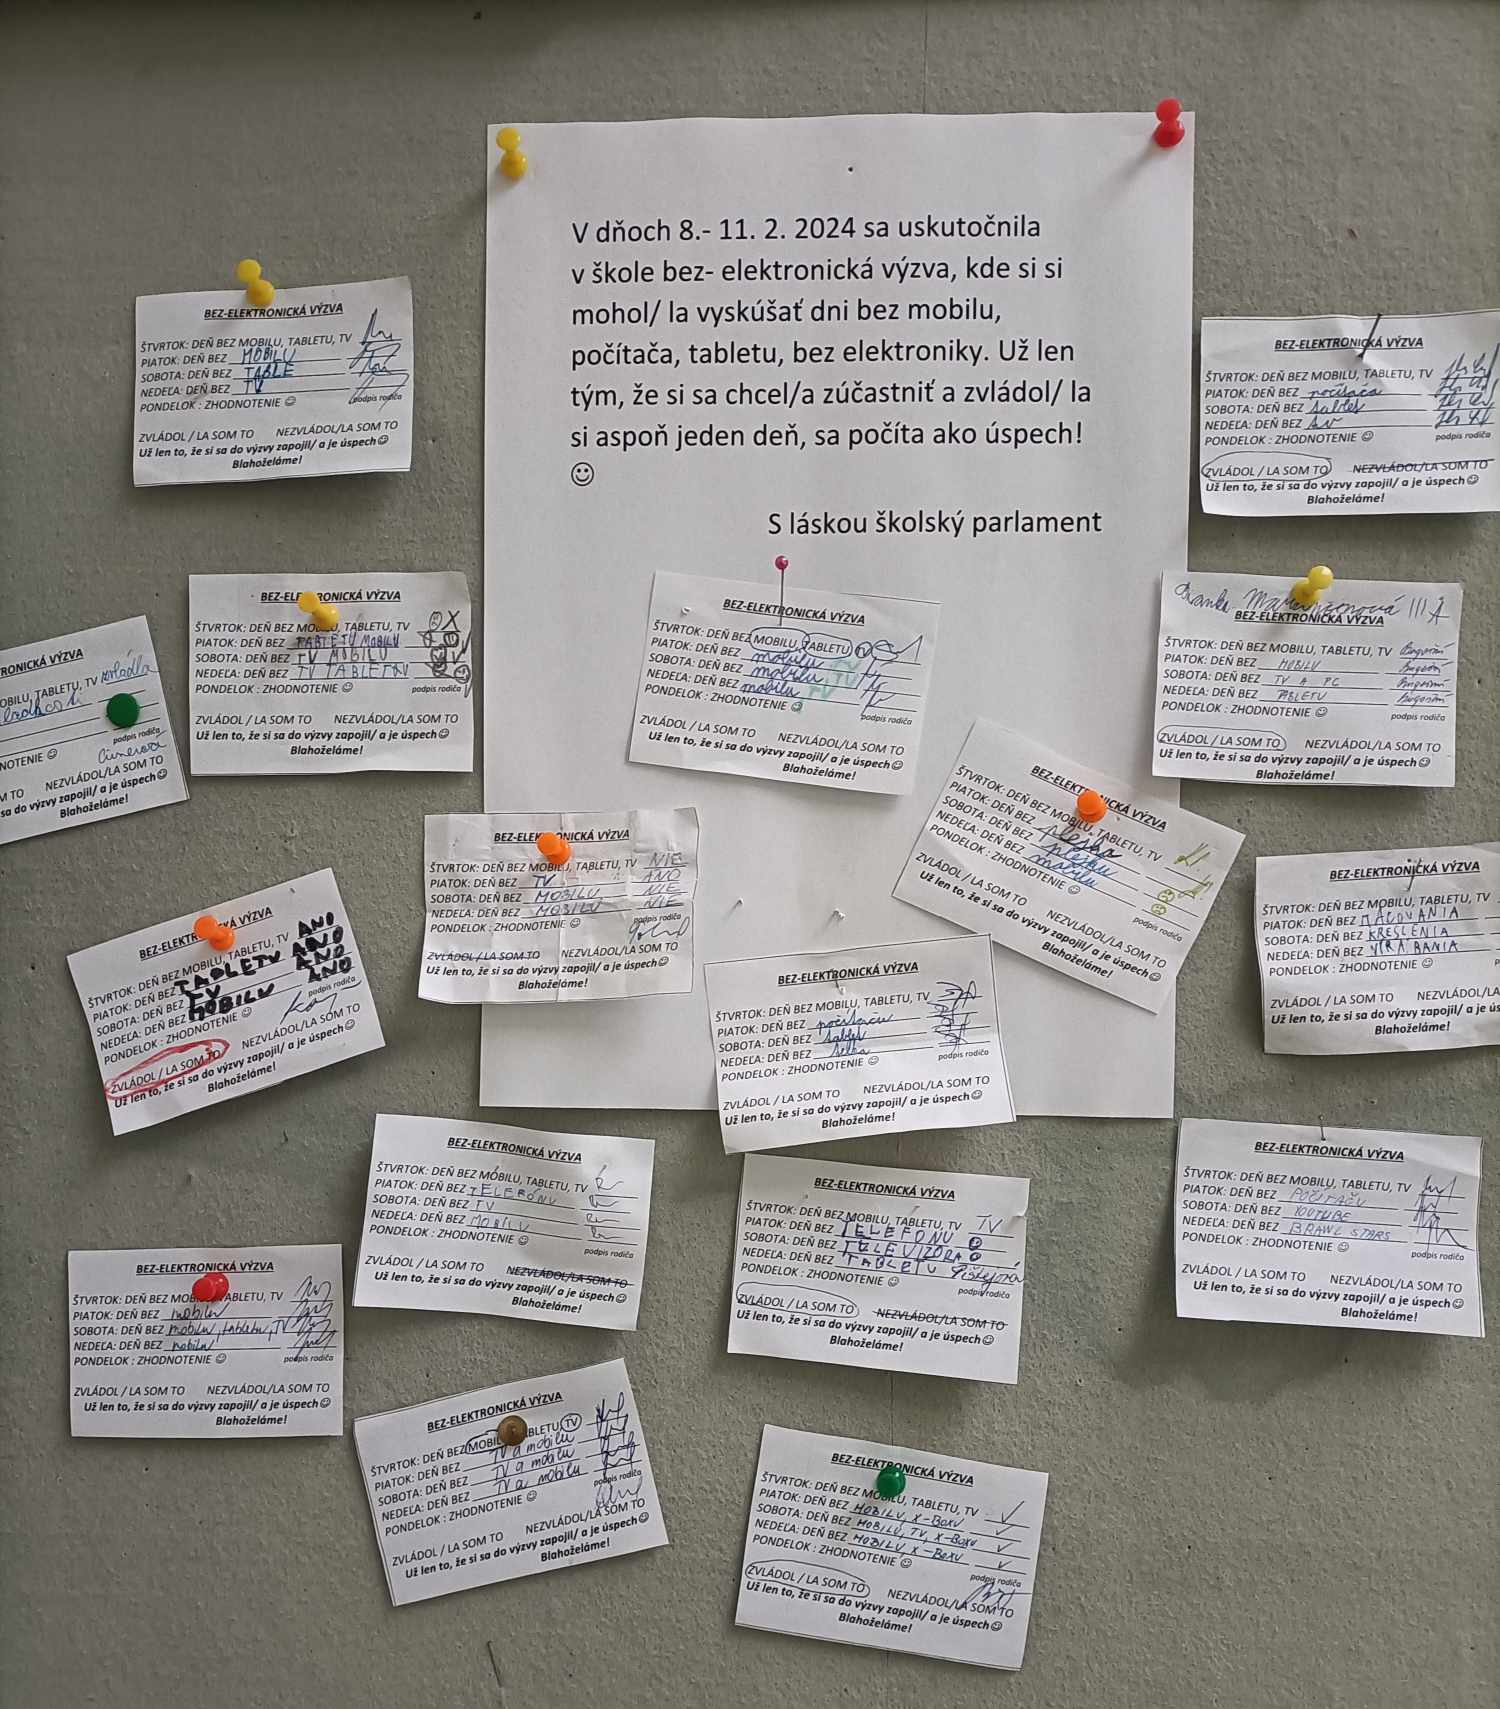 V dňoch 8.- 11. 2. 2024 sa uskutočnila
v škole bez- elektronická výzva, kde si si
mohol/ la vyskúšať dni bez mobilu,
počítača, tabletu, bez elektroniky. Už len
tým, že si sa chcel/a zúčastniť a zvládol/ la
si aspoň jeden deň, sa počíta ako úspech!
☺
S láskou školský parlament
BEZ-ELEKTRONICKÁ VÝZVA
ŠTVRTOK: DEŇ BEZ MOBILU, TABLETU, TV
PIATOK: DEŇ BEZ MOBILU
SOBOTA: DEŇ BEZ TABLE
NEDEĽA: DEŇ BEZ TV
PONDELOK : ZHODNOTENIE ☺ podpis rodiča
ZVLÁDOL / LA SOM TO NEZVLÁDOL/LA SOM TO
Už len to, že si sa do výzvy zapojil/ a je úspech☺
Blahoželáme!
BEZ-ELEKTRONICKÁ VÝZVA
ŠTVRTOK: DEŇ BEZ MOBILU, TABLETU, TV
PIATOK: DEŇ BEZ počítača
SOBOTA: DEŇ BEZ tablet
NEDEĽA: DEŇ BEZ tv
PONDELOK : ZHODNOTENIE ☺ podpis rodiča
ZVLÁDOL / LA SOM TO NEZVLÁDOL/LA SOM TO
Už len to, že si sa do výzvy zapojil/ a je úspech☺
Blahoželáme!
RONICKÁ VÝZVA
OBILU, TABLETU, TV zvládla
NOTENIE ☺ podpis rodiča
A SOM TO NEZVLÁDOL/LA SOM TO
sa do výzvy zapojil/ a je úspech☺
Blahoželáme!
BEZ-ELEKTRONICKÁ VÝZVA
ŠTVRTOK: DEŇ BEZ MOBILU, TABLETU, TV X
PIATOK: DEŇ BEZ TABLETU MOBILU
SOBOTA: DEŇ BEZ TV MOBILU
NEDEĽA: DEŇ BEZ TV TABLETU
PONDELOK : ZHODNOTENIE ☺ podpis rodiča
ZVLÁDOL / LA SOM TO NEZVLÁDOL/LA SOM TO
Už len to, že si sa do výzvy zapojil/ a je úspech☺
Blahoželáme!
BEZ-ELEKTRONICKÁ VÝZVA
ŠTVRTOK: DEŇ BEZ MOBILU, TABLETU, TV
PIATOK: DEŇ BEZ mobilu TV
SOBOTA: DEŇ BEZ mobilu TV
NEDEĽA: DEŇ BEZ mobilu TV
PONDELOK : ZHODNOTENIE ☺ podpis rodiča
ZVLÁDOL / LA SOM TO NEZVLÁDOL/LA SOM TO
Už len to, že si sa do výzvy zapojil/ a je úspech☺
Blahoželáme!
III A
BEZ-ELEKTRONICKÁ VÝZVA
ŠTVRTOK: DEŇ BEZ MOBILU, TABLETU, TV
PIATOK: DEŇ BEZ MOBILU
SOBOTA: DEŇ BEZ TV A PC
NEDEĽA: DEŇ BEZ TABLETU
PONDELOK : ZHODNOTENIE ☺ podpis rodiča
ZVLÁDOL / LA SOM TO NEZVLÁDOL/LA SOM TO
Už len to, že si sa do výzvy zapojil/ a je úspech☺
Blahoželáme!
BEZ-ELEKTRONICKÁ VÝZVA
ŠTVRTOK: DEŇ BEZ MOBILU, TABLETU, TV NIE
PIATOK: DEŇ BEZ TV ÁNO
SOBOTA: DEŇ BEZ MOBILU NIE
NEDEĽA: DEŇ BEZ MOBILU NIE
PONDELOK : ZHODNOTENIE ☺ podpis rodiča
ZVLÁDOL / LA SOM TO NEZVLÁDOL/LA SOM TO
Už len to, že si sa do výzvy zapojil/ a je úspech☺
Blahoželáme!
BEZ-ELEKTRONICKÁ VÝZVA
ŠTVRTOK: DEŇ BEZ MOBILU, TABLETU, TV
PIATOK: DEŇ BEZ
SOBOTA: DEŇ BEZ
NEDEĽA: DEŇ BEZ mobilu
PONDELOK : ZHODNOTENIE ☺ podpis rodiča
ZVLÁDOL / LA SOM TO NEZVLÁDOL/LA SOM TO
Už len to, že si sa do výzvy zapojil/ a je úspech☺
Blahoželáme!
BEZ-ELEKTRONICKÁ VÝZVA
ŠTVRTOK: DEŇ BEZ MOBILU, TABLETU, TV
PIATOK: DEŇ BEZ MAĽOVANIA
SOBOTA: DEŇ BEZ KRESLENIA
NEDEĽA: DEŇ BEZ VYRÁBANIA
PONDELOK : ZHODNOTENIE ☺
ZVLÁDOL / LA SOM TO NEZVLÁDOL/LA
Už len to, že si sa do výzvy zapojil/ a je ús
Blahoželáme!
BEZ-ELEKTRONICKÁ VÝZVA
ŠTVRTOK: DEŇ BEZ MOBILU, TABLETU, TV ANO
PIATOK: DEŇ BEZ TABLETU ANO
SOBOTA: DEŇ BEZ TV ANO
NEDEĽA: DEŇ BEZ MOBILU ANO
PONDELOK : ZHODNOTENIE ☺ podpis rodiča
ZVLÁDOL / LA SOM TO NEZVLÁDOL/LA SOM TO
Už len to, že si sa do výzvy zapojil/ a je úspech☺
Blahoželáme!
BEZ-ELEKTRONICKÁ VÝZVA
ŠTVRTOK: DEŇ BEZ MOBILU, TABLETU, TV
PIATOK: DEŇ BEZ počítaču
SOBOTA: DEŇ BEZ tablet
NEDEĽA: DEŇ BEZ
PONDELOK : ZHODNOTENIE ☺ podpis rodiča
ZVLÁDOL / LA SOM TO NEZVLÁDOL/LA SOM TO
Už len to, že si sa do výzvy zapojil/ a je úspech☺
Blahoželáme!
BEZ-ELEKTRONICKÁ VÝZVA
ŠTVRTOK: DEŇ BEZ MOBILU, TABLETU, TV
PIATOK: DEŇ BEZ TELEFÓNU
SOBOTA: DEŇ BEZ TV
NEDEĽA: DEŇ BEZ MOBILU
PONDELOK : ZHODNOTENIE ☺ podpis rodiča
ZVLÁDOL / LA SOM TO NEZVLÁDOL/LA SOM TO
Už len to, že si sa do výzvy zapojil/ a je úspech☺
Blahoželáme!
BEZ-ELEKTRONICKÁ VÝZVA
ŠTVRTOK: DEŇ BEZ MOBILU, TABLETU, TV TV
PIATOK: DEŇ BEZ TELEFONU
SOBOTA: DEŇ BEZ TELEVIZORA
NEDEĽA: DEŇ BEZ TABLETU
PONDELOK : ZHODNOTENIE ☺ podpis rodiča
ZVLÁDOL / LA SOM TO NEZVLÁDOL/LA SOM TO
Už len to, že si sa do výzvy zapojil/ a je úspech☺
Blahoželáme!
BEZ-ELEKTRONICKÁ VÝZVA
ŠTVRTOK: DEŇ BEZ MOBILU, TABLETU, TV
PIATOK: DEŇ BEZ POČÍTAČU
SOBOTA: DEŇ BEZ YOUTUBE
NEDEĽA: DEŇ BEZ BRAWL STARS
PONDELOK : ZHODNOTENIE ☺ podpis rodiča
ZVLÁDOL / LA SOM TO NEZVLÁDOL/LA SOM TO
Už len to, že si sa do výzvy zapojil/ a je úspech☺
Blahoželáme!
BEZ-ELEKTRONICKÁ VÝZVA
ŠTVRTOK: DEŇ BEZ MOBILU, TABLETU, TV
PIATOK: DEŇ BEZ mobilu
SOBOTA: DEŇ BEZ mobilu, tabletu, TV
NEDEĽA: DEŇ BEZ mobilu
PONDELOK : ZHODNOTENIE ☺ podpis rodiča
ZVLÁDOL / LA SOM TO NEZVLÁDOL/LA SOM TO
Už len to, že si sa do výzvy zapojil/ a je úspech☺
Blahoželáme!
BEZ-ELEKTRONICKÁ VÝZVA
ŠTVRTOK: DEŇ BEZ MOBILU, TABLETU, TV
PIATOK: DEŇ BEZ TV a mobilu
SOBOTA: DEŇ BEZ TV a mobilu
NEDEĽA: DEŇ BEZ TV a mobilu
PONDELOK : ZHODNOTENIE ☺ podpis rodiča
ZVLÁDOL / LA SOM TO NEZVLÁDOL/LA SOM TO
Už len to, že si sa do výzvy zapojil/ a je úspech☺
Blahoželáme!
BEZ-ELEKTRONICKÁ VÝZVA
ŠTVRTOK: DEŇ BEZ MOBILU, TABLETU, TV ✓
PIATOK: DEŇ BEZ MOBILU, X-BOXU ✓
SOBOTA: DEŇ BEZ MOBILU, TV, X-BOXU ✓
NEDEĽA: DEŇ BEZ MOBILU, X-BOXU ✓
PONDELOK : ZHODNOTENIE ☺ podpis rodiča
ZVLÁDOL / LA SOM TO NEZVLÁDOL/LA SOM TO
Už len to, že si sa do výzvy zapojil/ a je úspech☺
Blahoželáme!